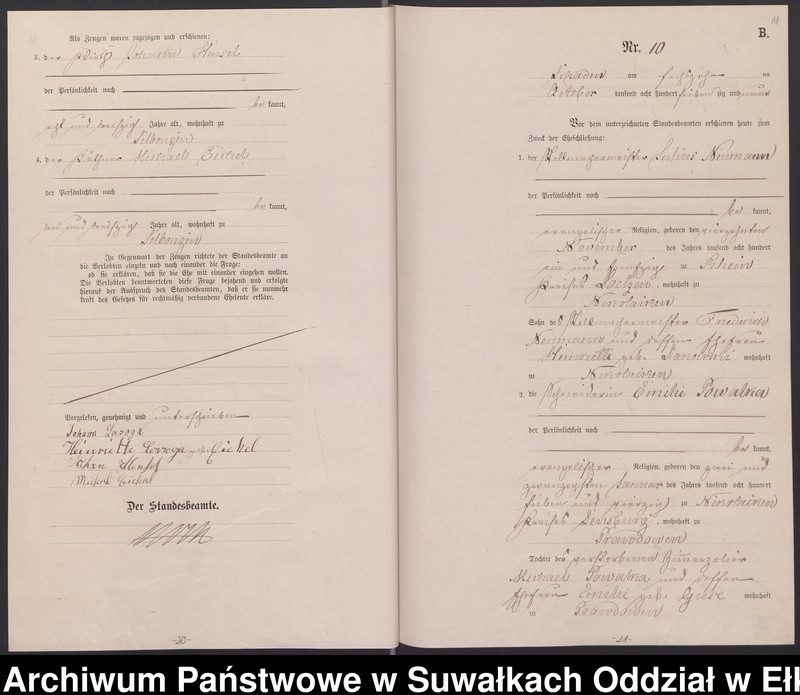 Als Zeugen waren zugezogen und erschienen:
3. der Wirth Johann Hensel
der Persönlichkeit nach
be kannt,
und dreißig Jahre alt, wohnhaft zu
4. der Käthner Michael Eichel
der Persönlichkeit nach
be kannt,
und dreißig Jahre alt, wohnhaft zu
In Gegenwart der Zeugen richtete der Standesbeamte an
die Verlobten einzeln und nach einander die Frage:
ob sie erklären, daß sie die Ehe mit einander eingehen wollen.
Die Verlobten beantworteten diese Frage bejahend und erfolgte
hierauf der Ausspruch des Standesbeamten, daß er sie nunmehr
kraft des Gesetzes für rechtmäßig verbundene Eheleute erkläre.
Vorgelesen, genehmigt und unterschrieben
Johann
Heinriette geb. Eichel
Hensel
Michael Eichel
Der Standesbeamte.
-20-
11
B.
Nr. 10
am sechszehn ten
October tausend acht hundert siebenzig und neun
Vor dem unterzeichneten Standesbeamten erschienen heute zum
Zweck der Eheschließung:
1. der Stellmachermeister Julius Neumann
der Persönlichkeit nach
be kannt,
evangelischer Religion, geboren den vierzehnten
November des Jahres tausend acht hundert
ein und fünfzig zu Rhein
Kreises Loetzen, wohnhaft zu
Nikolaiken
Sohn des Stellmachermeister Friedrich
Neumann und dessen Ehefrau
Henriette geb. wohnhaft
zu Nikolaiken
2. die Schneiderin Emilie Powalka
der Persönlichkeit nach
be kannt,
evangelischer Religion, geboren den zwei und
zwanzigsten Januar des Jahres tausend acht hundert
sieben und vierzig zu Nikolaiken
Kreises Sensburg, wohnhaft zu
Prawdowen
Tochter des verstorbenen
Michael Powalka und dessen
Ehefrau Emilie geb. Giese wohnhaft
in Prawdowen
-21-
Archiwum Państwowe w Suwałkach Oddział w Eł